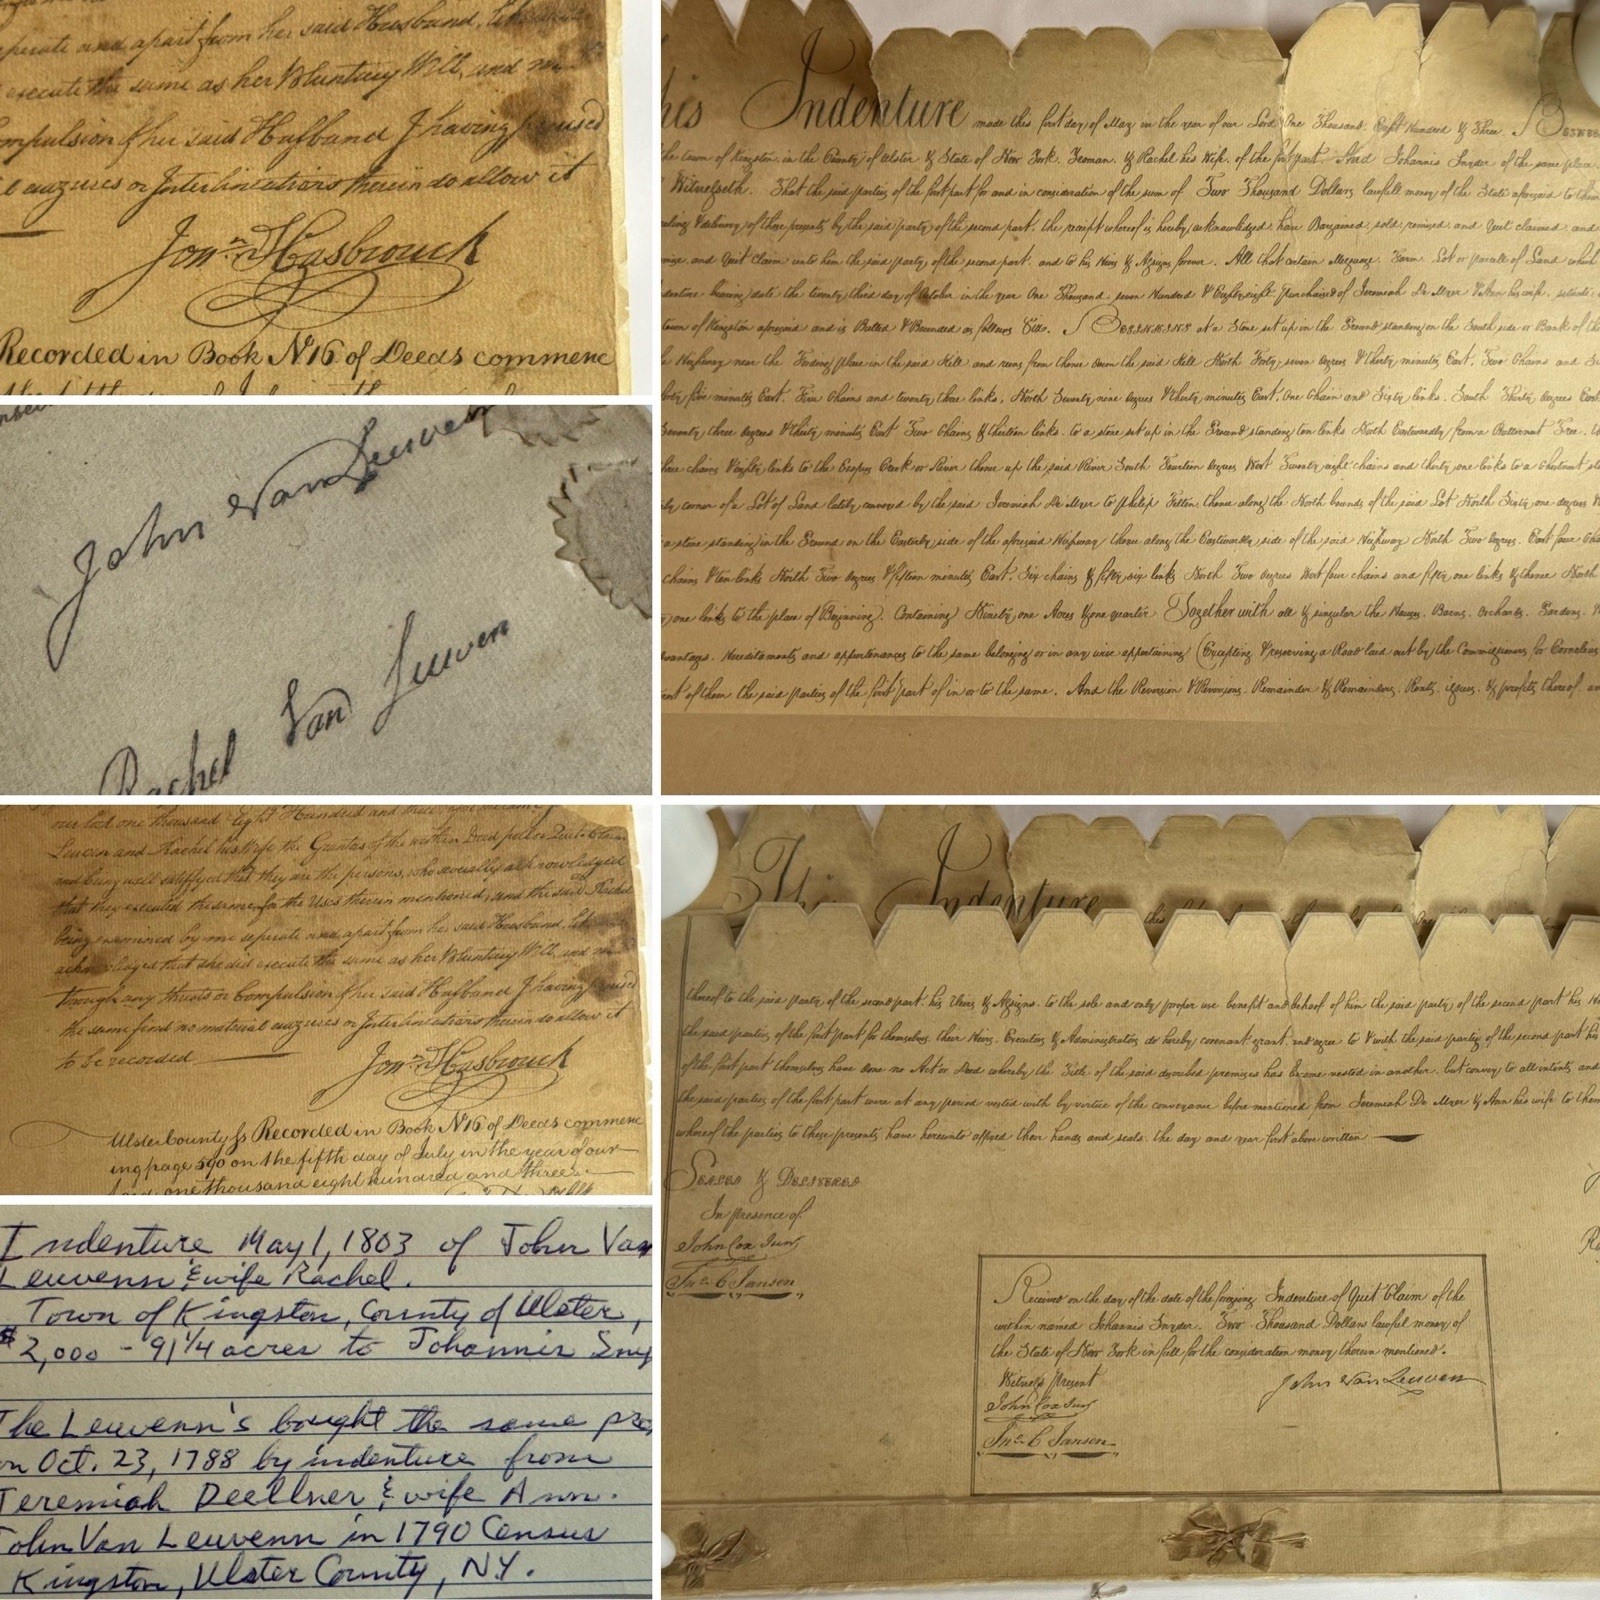 eperate and apart from her said Husband,
execute the same as her Voluntary Will, and
ompulsion of her said Husband I having
l erazures or Interlineations therein do allow it
Jonn. Hasbrouck
Recorded in Book No 16 of Deeds commenc
John Van Leuven
Rachel Van Leuven
our lord one thousand Eight Hundred and three
Leuven and Rachel his Wife the Grantors of the within Deed Quit Claim
and being well satisfyed that they are the persons, who severally acknowledged
that they executed the same, for the Uses therein mentioned, and the said Rachel
being examined by me seperate and apart from her said Husband,
acknowledged that she did execute the same as her Voluntary Will, and
though any threats or Compulsion of her said Husband I having
the same find no material erazures or Interlineations therein do allow it
to be recorded
Jonn. Hasbrouck
Ulster County Ss Recorded in Book No 16 of Deeds commenc
ing page 590 on the fifth day of July in the year of our
Lord one thousand eight hundred and three
Indenture May 1, 1803 of John Van
Leuvenn & wife Rachel.
Town of Kingston, County of Ulster,
$2,000 - 91 1/4 acres to Johannis Sny
The Leuvenn's bought the same pre
on Oct. 23, 1788 by indenture from
Jeremiah Deellner & wife Ann.
John Van Leuvenn in 1790 Census
Kingston, Ulster County, N.Y.
his Indenture made this first day of May in the year of our Lord One Thousand Eight Hundred & Three.
the town of Kingston in the County of Ulster & State of New York. Yeoman. & Rachel his Wife. of the first part. And Johannis Snyder of the same place
Witnesseth. That the said parties of the first part for and in consideration of the sum of Two Thousand Dollars lawfull money of the State aforesaid to them
delivery of these presents by the said party of the second part. the receipt whereof is hereby acknowledged. have Bargained. sold. remised. and Quit claimed. and
mise. and Quit Claim unto him the said party of the second part. and to his Heirs & Assigns forever. All that certain Messuage. Farm. Lot or parcell of Land which
ndenture bearing date the twenty third day of October in the year One Thousand seven Hundred & Eighty eight purchased of Jeremiah De Myer & Ann his wife. situate
town of Kingston aforesaid and is Butted & Bounded as follows Vizto. Beginning at a Stone set up in the Ground standing on the South side or Bank of the
Highway near the Fording place in the said Kill and runs from thence down the said Kill North Forty seven degrees & thirty minutes East. Two Chains and
forty five minutes East. Five Chains and twenty three links. North Seventy nine degrees & thirty minutes East. One Chain and Sixty links. South Thirty degrees East
Seventy three degrees & thirty minutes East Two Chains & thirteen links. to a stone set up in the Ground standing ten links North Eastwardly from a Butternut Tree.
chains & eighty links to the Esopus Creek or River thence up the said River South Fourteen degrees West Twenty eight chains and thirty one links to a Chestnut
corner of a Lot of Land lately conveyed by the said Jeremiah De Myer to Philip Felten. thence along the North bounds of the said Lot North Sixty one degrees
a stone standing in the Ground on the Easterly side of the aforesaid Highway thence along the Eastwardly side of the said Highway North Two degrees. East four
chains & ten links North Two degrees & fifteen minutes East. Six chains & fifty six links North Two degrees West four chains and fifty one links & thence North
one links to the place of Beginning. Containing Ninety one Acres & one quarter Together with all & singular the Houses. Barns. Orchards. Gardens.
dvantages. Hereditaments and appurtenances to the same belonging or in any wise appertaining (Excepting & reserving a Road laid out by the Commissioners for Cornelius
ent of them the said parties of the first part of in or to the same. And the Reversion & Reversions. Remainder & Remainders. Rents. issues. & profits thereof.
This Indenture
thereof to the said party of the second part his Heirs & Assigns. to the sole and only proper use benefit and behoof of him the said party of the second part his
the said parties of the first part for themselves. their Heirs. Executors & Administrators do hereby covenant grant. and agree to & with the said parties of the second part his
of the first part themselves have done no Act or Deed whereby the Title of the said described premises has become vested in another. but convey to all intents and
the said parties of the first part were at any period vested with by virtue of the conveyance before mentioned from Jeremiah De Myer & Ann his wife to them
whereof the parties to these presents have hereunto affixed their hands and seals. the day and year first above written
Sealed & Delivered
In presence of
John Cox Junr
Jno. C Jansen
Received on the day of the date of the foregoing Indenture of Quit Claim of the
within named Johannis Snyder. Two Thousand Dollars lawful money of
the State of New York in full for the consideration money therein mentioned.
Witness Present
John Van Leuven
John Cox Junr
Jno. C Jansen